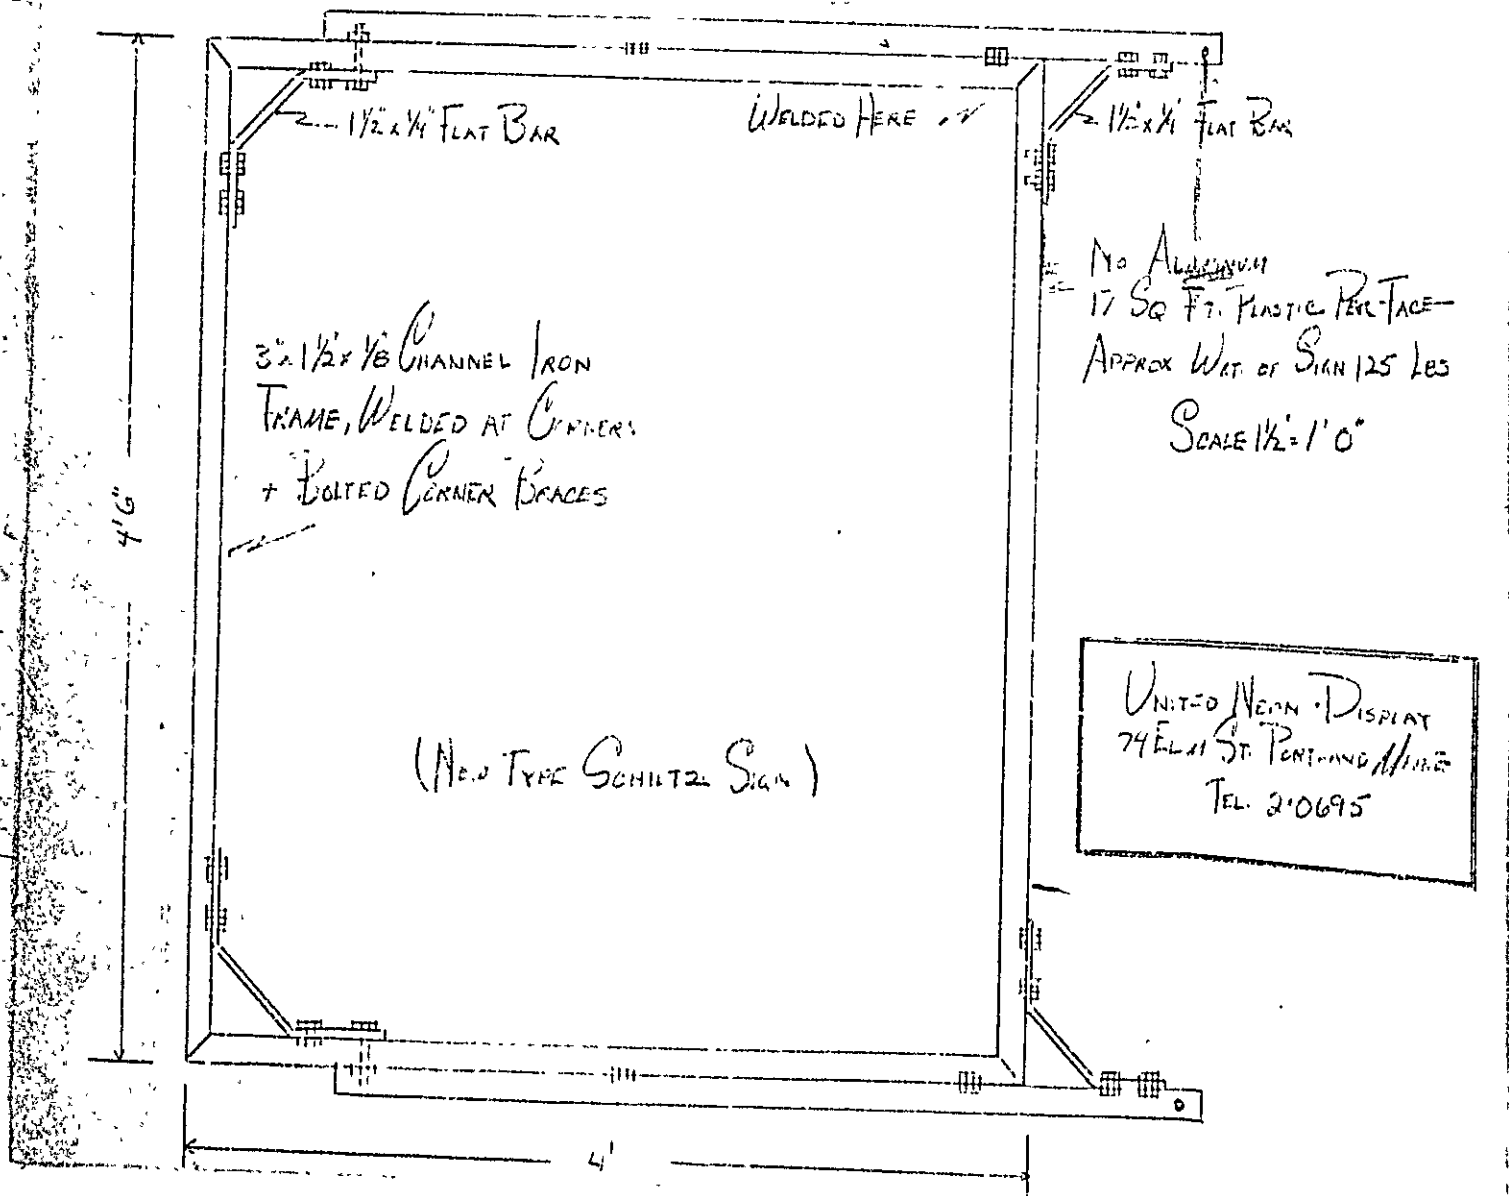 1½" x ¼" FLAT BAR
WELDED HERE
1½" x ¼" FLAT BAR
NO ALUMINUM
17 SQ FT. PLASTIC PER FACE—
APPROX WGT. OF SIGN 125 LBS
SCALE 1½" = 1' 0"
3" x 1½" x ⅛ CHANNEL IRON
FRAME, WELDED AT CORNERS
+ BOLTED CORNER BRACES
4'6"
(NEW TYPE SCHLITZ SIGN)
UNITED NEON DISPLAY
74 ELM ST. PORTLAND MAINE
TEL. 2-0695
4'